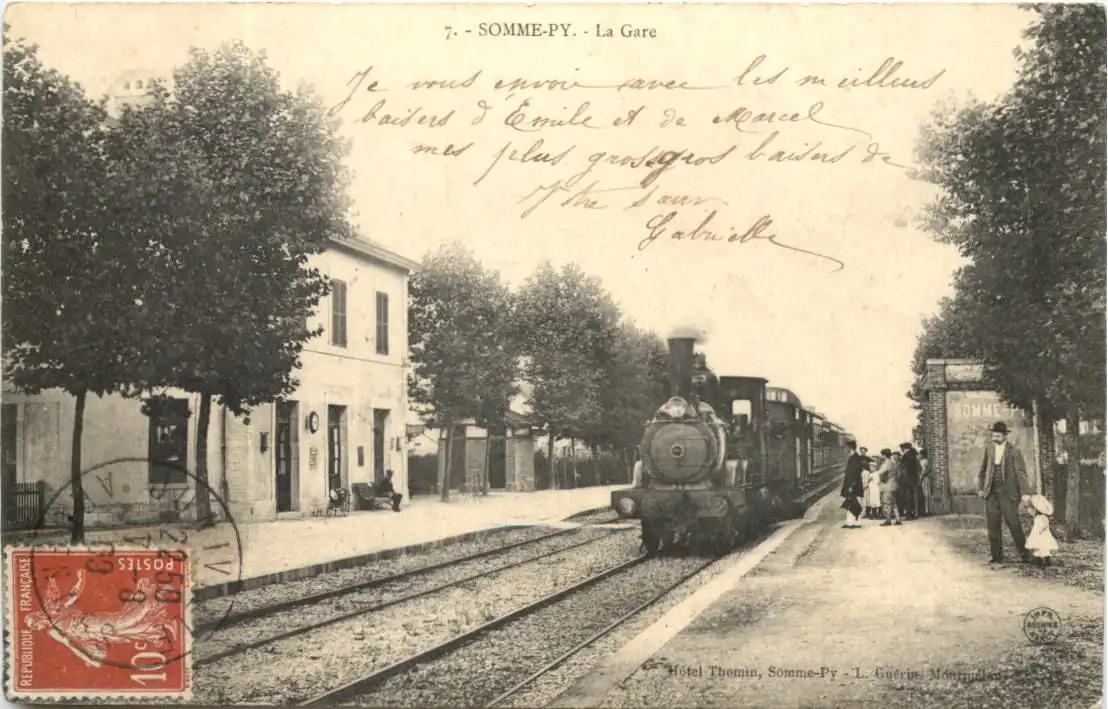 7. - SOMME-PY. - La Gare
Je vous envoie avec les meilleurs
baisers d'Émile et de Marcel
mes plus gros gros baisers de
Votre sœur
Gabrielle
SOMME-PY
RÉPUBLIQUE FRANÇAISE
POSTES
10c
Hôtel Thomin, Somme-Py - L. Guérin, Mourmelon